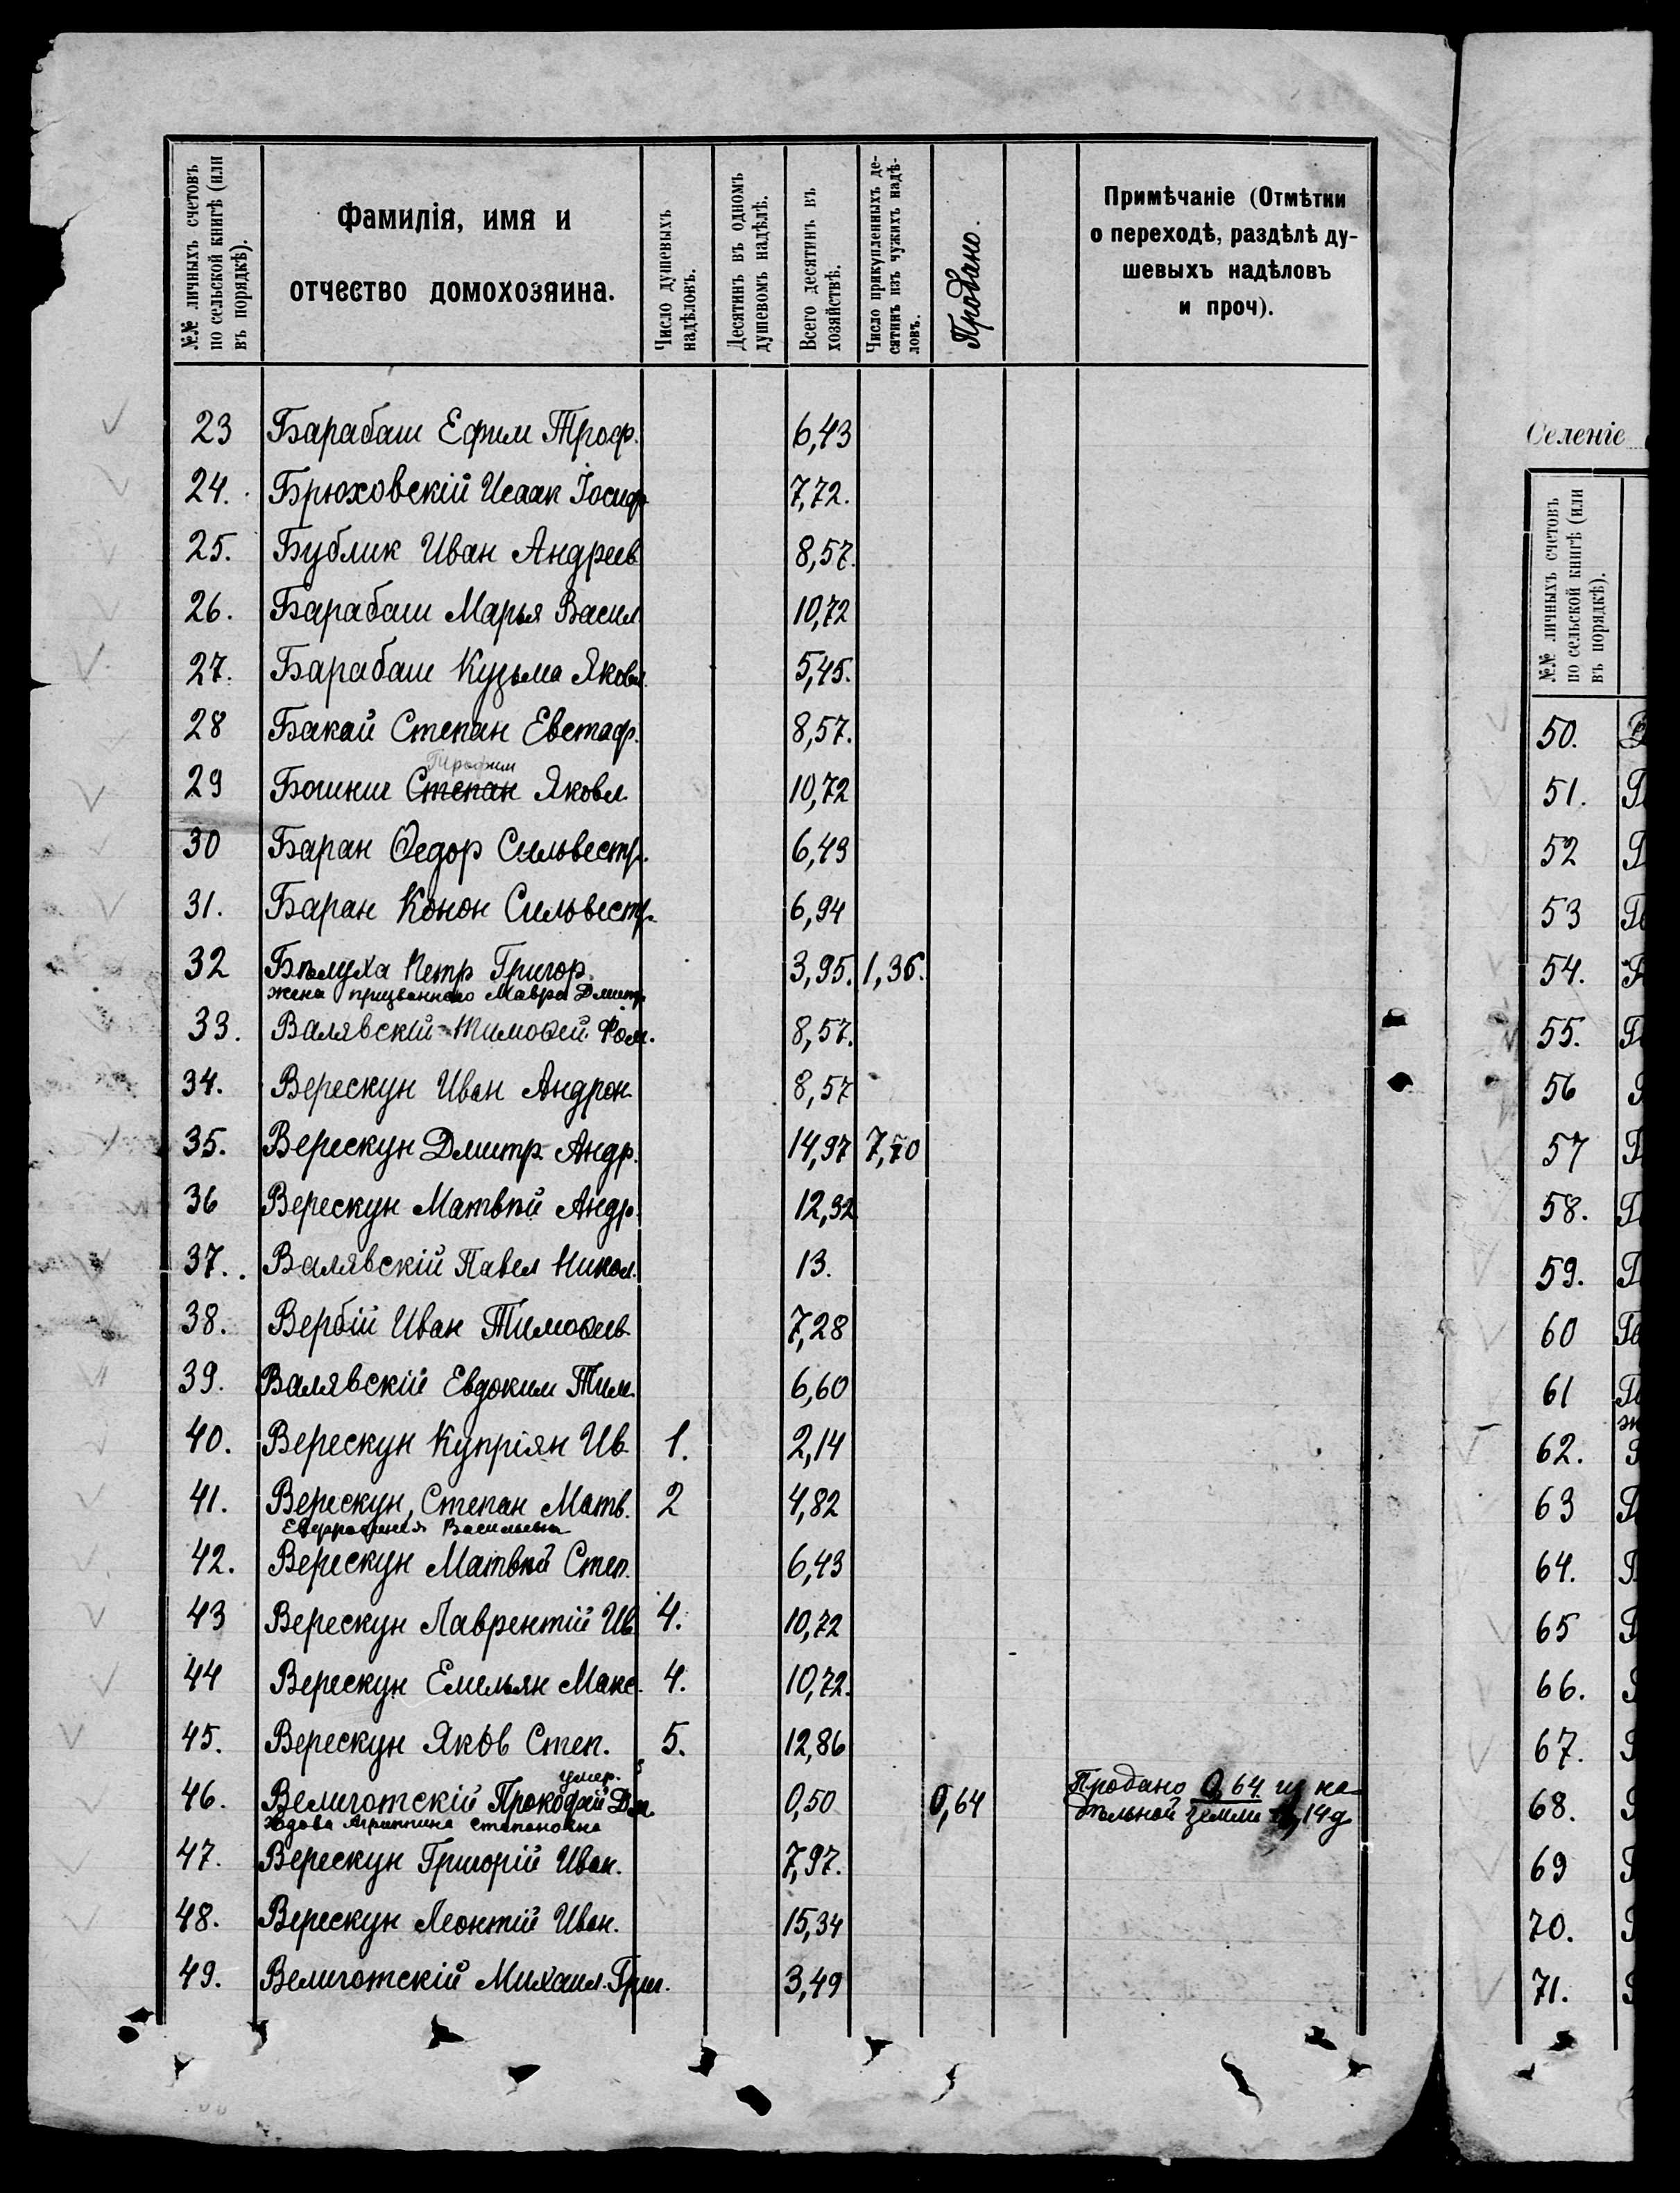 №№ личныхъ счетовъ по сельской книгѣ (или въ порядкѣ).
Фамилія, имя и отчество домохозяина.
Число душевыхъ надѣловъ.
Десятинъ въ одномъ душевомъ надѣлѣ.
Всего десятинъ въ хозяйствѣ.
Число прикупленныхъ десятинъ изъ чужихъ надѣловъ.
Продано.
Примѣчаніе (Отмѣтки
о переходѣ, раздѣлѣ ду-
шевыхъ надѣловъ
и проч).
23 Барабаш Ефим Троф. 6,43
24. Брюховскій Исаак Іосиф 7,72.
25. Бублик Иван Андреев 8,57.
26. Барабаш Марья Васил 10,72
27. Барабаш Кузьма Яковл. 5,45.
28 Бакай Степан Евстаф. 8,57.
Трофим
29 Степан Яковл. 10,72
30 Баран Ѳедор Сильвестр. 6,43
31. Баран Конон Сильвестр. 6,94
32 Бѣлуха Петр Григор. 3,95. 1,36.
жена призваннаго Мавра Дмитр
33. Валявскій Тимоѳей Фом. 8,57.
34. Верескун Иван Андрон. 8,57
35. Верескун Дмитр. Андр. 14,97 7,70
36 Верескун Матвѣй Андр. 12,32
37. Валявскій Павел Никол. 13.
38. Вербій Иван Тимоѳеев 7,28
39. Валявскій Евдоким Тим. 6,60
40. Верескун Купріян Ив 1. 2,14
41. Верескун, Степан Матв. 2 4,82
Васильевна
42. Верескун Матвѣй Степ. 6,43
43 Верескун Лаврентій Ив. 4. 10,72
44 Верескун Емельян Макс. 4. 10,72.
45. Верескун Яков Степ. 5. 12,86
умер.
46. Величотскій Прокофій Дм. 0,50 0,64 Продано 0,64 из на-
вдова Агриппина Степановна
дѣльной земли 14 д
47. Верескун Григорій Иван. 7,97.
48. Верескун Леонтій Иван. 15,34
49. Величотскій Михаил Григ. 3,49
Селеніе
№№ личныхъ счетовъ по сельской книгѣ (или въ порядкѣ).
50.
51.
52
53
54.
55.
56
57
58.
59.
60
61
62.
63
64.
65
66.
67.
68.
69
70.
71.